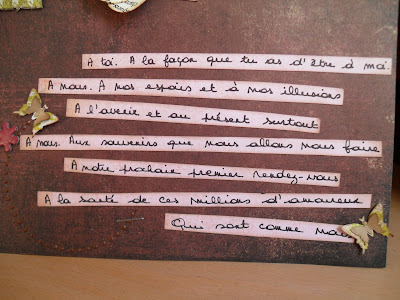 A toi. A la façon que tu as d'être à moi.
A nous. A nos espoirs et à nos illusions
A l'avenir et au présent surtout
A nous. Aux souvenirs que nous allons nous faire
A notre prochain premier rendez-vous
A la santé de ces millions d'amoureux
Qui sont comme